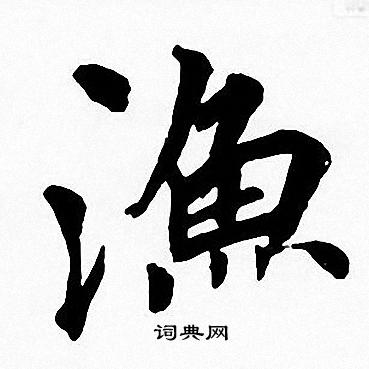 漁
词典网